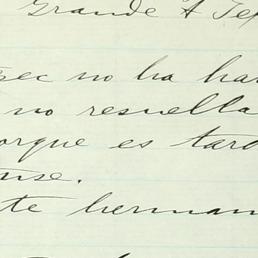 Grande A Te
pec no ha ha
no resuella
orque es tard
nse.
te herman